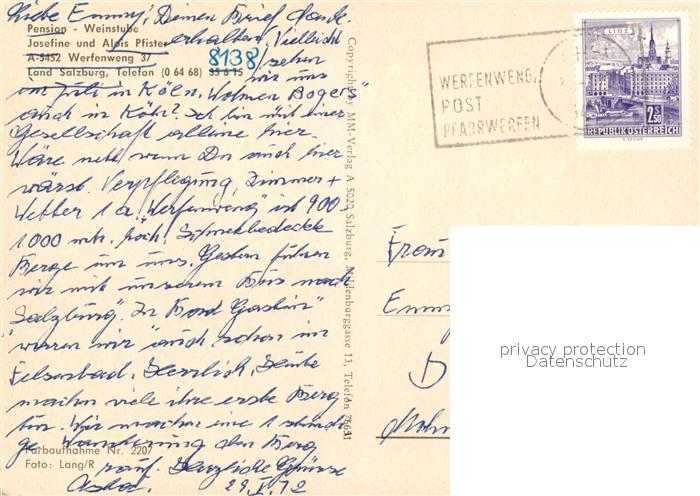 Liebe Emmy! Deinen Brief dank.
Pension - Weinstube
Josefine und Alois Pfister
erhalten. Vielleicht
8138
sehen
A-5452 Werfenweng 37
Land Salzburg, Telefon (0 64 68) 35 6 15
wir uns
im Juli in Köln. Wohnen
auch in Köln? Ich bin mit einer
Gesellschaft alleine hier.
Wäre nett wenn Du auch hier
wärst. Verpflegung, Zimmer +
Wetter 1 a. "Werfenweng" ist 900-
1000 mtr. hoch. Schneebedeckte
Berge um uns. Gestern führen
wir mit unserem Bus nach
"Salzburg". In "Bad Gastein"
waren wir auch schon im
Felsenbad. Herrlich. Heute
machen viele ihre erste Berg
tur. Wir machen eine 1 stündi
ge Wanderung den Berg
Farbaufnahme Nr. 2207
Foto: Lang/R
rauf. Herzliche Grüsse
29.V.72
Copyright by MM-Verlag A 5020 Salzburg, Mildenburggasse 13, Telefon 76631
WERFENWENG,
POST
PFARRWERFEN
LINZ
2.50
REPUBLIK ÖSTERREICH
Frau
Emm
D
privacy protection
Datenschutz